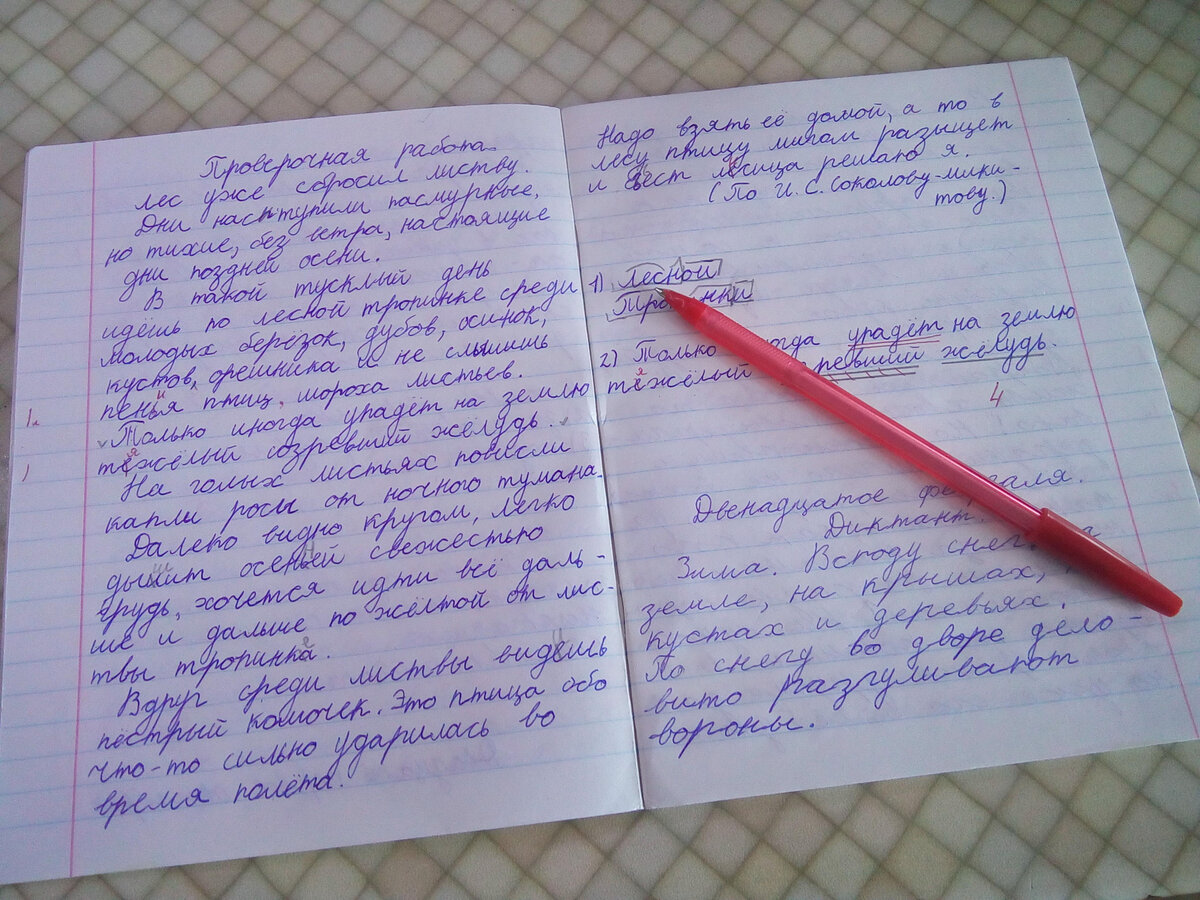 Проверочная работа.
лес уже сбросил листву.
Дни наступили пасмурные,
но тихие, без ветра, настоящие
дни поздней осени.
В такой тусклый день
идёшь по лесной тропинке среди
молодых берёзок, дубов, осинок,
кустов, орешника и не слышишь
пенья птиц, шороха листьев.
Только иногда упадёт на землю
тяжёлый созревший жёлудь.
На голых листьях повисли
капли росы от ночного тумана.
Далеко видно кругом, легко
дышит осеней свежестью
грудь, хочется идти всё даль-
ше и дальше по жёлтой от лис-
твы тропинке.
Вдруг среди листвы видишь
пёстрый комочек. Это птица обо
что-то сильно ударилась во
время полёта.
Надо взять её домой, а то в
лесу птицу мигом разыщет
и съест лисица решаю я.
(По И. С. Соколову-Мики-
тову.)
1) Лесной
2) Только упадёт на землю
тяжёлый жёлудь.
4
Двенадцатое
Диктант.
Зима. Всюду снег.
земле, на крышах,
кустах и деревьях.
По снегу во дворе дело-
вито разгуливают
вороны.